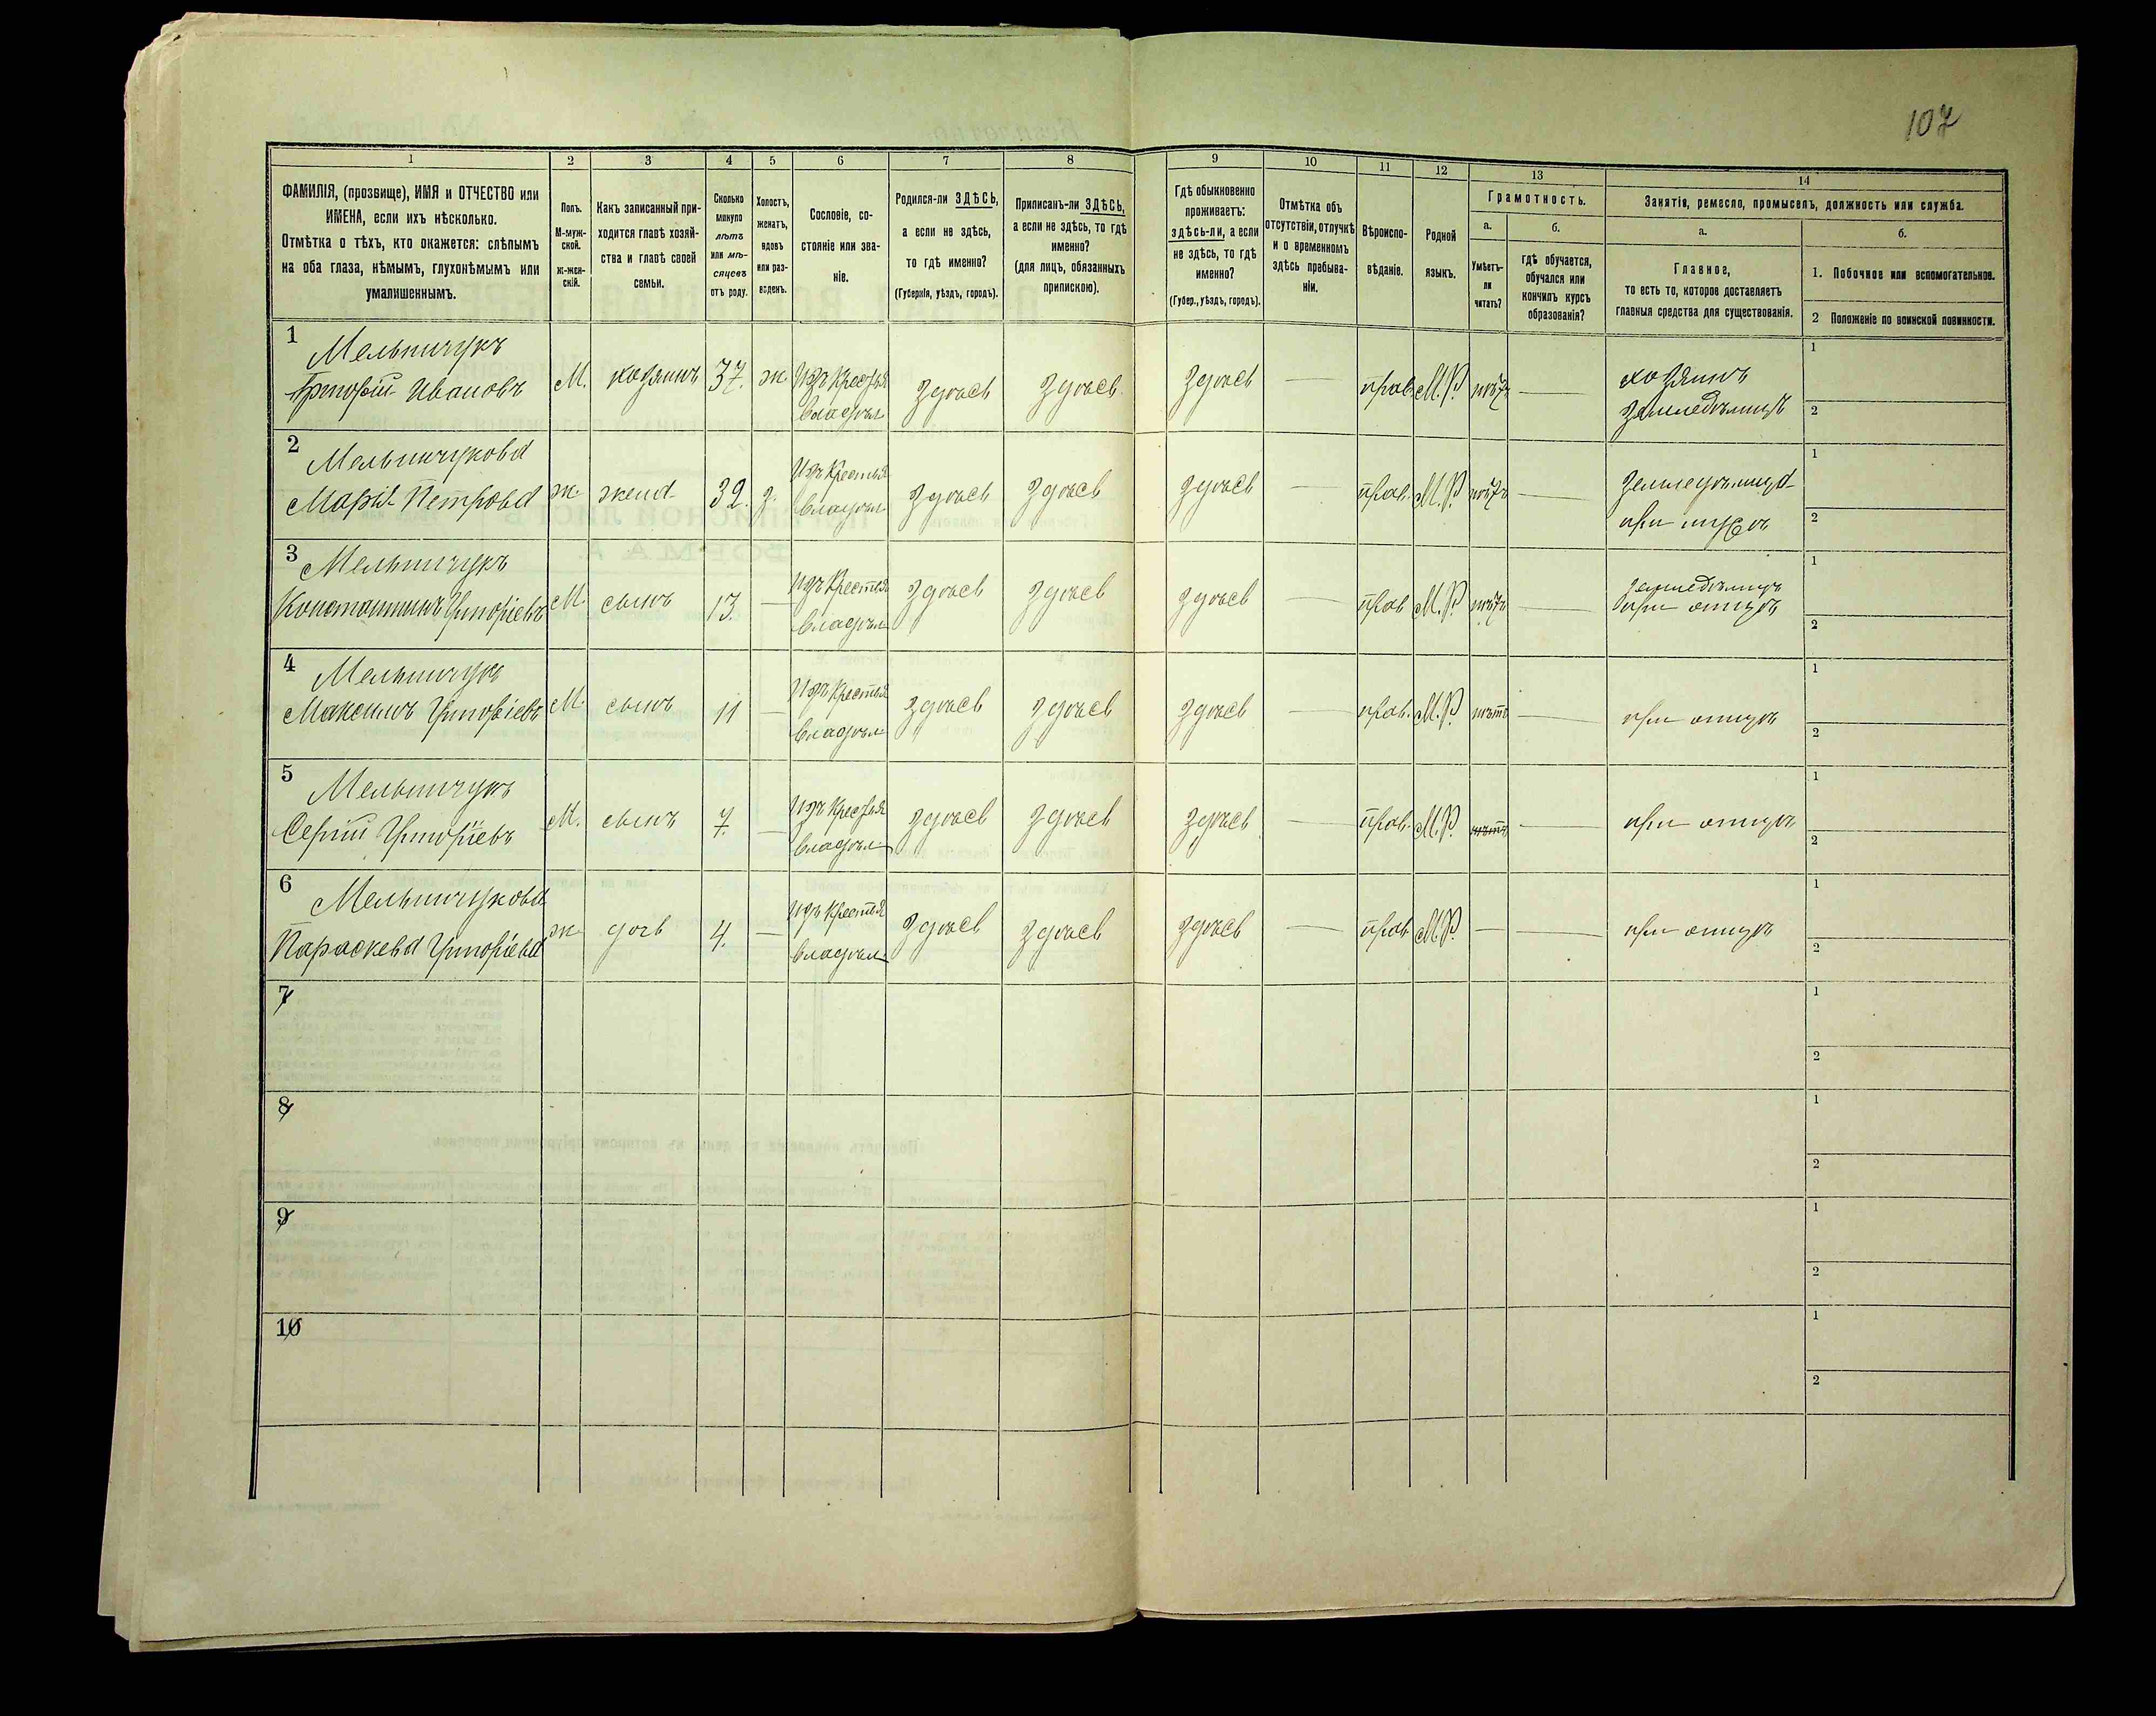 107
1 2 3 4 5 6 7 8 9 10 11 12 13 14
ФАМИЛІЯ, (прозвище), ИМЯ и ОТЧЕСТВО или
ИМЕНА, если ихъ нѣсколько.
Отмѣтка о тѣхъ, кто окажется: слѣпымъ
на оба глаза, нѣмымъ, глухонѣмымъ или
умалишеннымъ.
Полъ.
М-муж-
ской.
ж-жен-
скій.
Какъ записанный при-
ходится главѣ хозяй-
ства и главѣ своей
семьи.
Сколько
минуло
лѣтъ
или мѣ-
сяцевъ
отъ роду.
Холостъ,
женатъ,
вдовъ
или раз-
веденъ.
Сословіе, со-
стояніе или зва-
ніе.
Родился-ли ЗДѢСЬ,
а если не здѣсь,
то гдѣ именно?
(Губернія, уѣздъ, городъ).
Приписанъ-ли ЗДѢСЬ,
а если не здѣсь, то гдѣ
именно?
(для лицъ, обязанныхъ
припискою).
Гдѣ обыкновенно
проживаетъ:
здѣсь-ли, а если
не здѣсь, то гдѣ
именно?
(Губер., уѣздъ, городъ).
Отмѣтка объ
отсутствіи, отлучкѣ
и о временномъ
здѣсь пребыва-
ніи.
Вѣроиспо-
вѣданіе.
Родной
языкъ.
Грамотность.
а.
Умѣетъ-
ли
читать?
б.
гдѣ обучается,
обучался или
кончилъ курсъ
образованія?
Занятія, ремесло, промыселъ, должность или служба.
а.
Главное,
то есть то, которое доставляетъ
главныя средства для существованія.
б.
1. Побочное или вспомогательное.
2 Положеніе по воинской повинности.
1
Мельничукъ
Григорій Ивановъ М. хозяинъ 37. ж Изъ Крестья здѣсь здѣсь здѣсь — прав. М.Р. нѣтъ — хозяинъ
владѣл земледѣлецъ
1
2
2
Мельничукова
Марія Петрова ж. жена 32. з. Изъ Крестья здѣсь здѣсь здѣсь — прав. М.Р. нѣтъ —
владѣл при мужѣ
1
2
3
Мельничукъ
Константинъ Григоріевъ М. сынъ 13. — Изъ Крестья здѣсь здѣсь здѣсь — прав М.Р. нѣтъ — земледѣлецъ
владѣл при отцѣ
1
2
4
Мельничукъ
Максимъ Григоріевъ М. сынъ 11 — Изъ Крестья здѣсь здѣсь здѣсь — прав. М.Р. нѣтъ — при отцѣ
владѣл
1
2
5
Мельничукъ
Сергій Григоріевъ М. сынъ 7. — Изъ Крестья здѣсь здѣсь здѣсь — прав. М.Р. нѣтъ — при отцѣ
владѣл
1
2
6
Мельничукова
Параскева Григоріева ж дочь 4. — Изъ Крестья здѣсь здѣсь здѣсь — прав М.Р. — — при отцѣ
владѣл
1
2
7
1
2
8
1
2
9
1
2
10
1
2